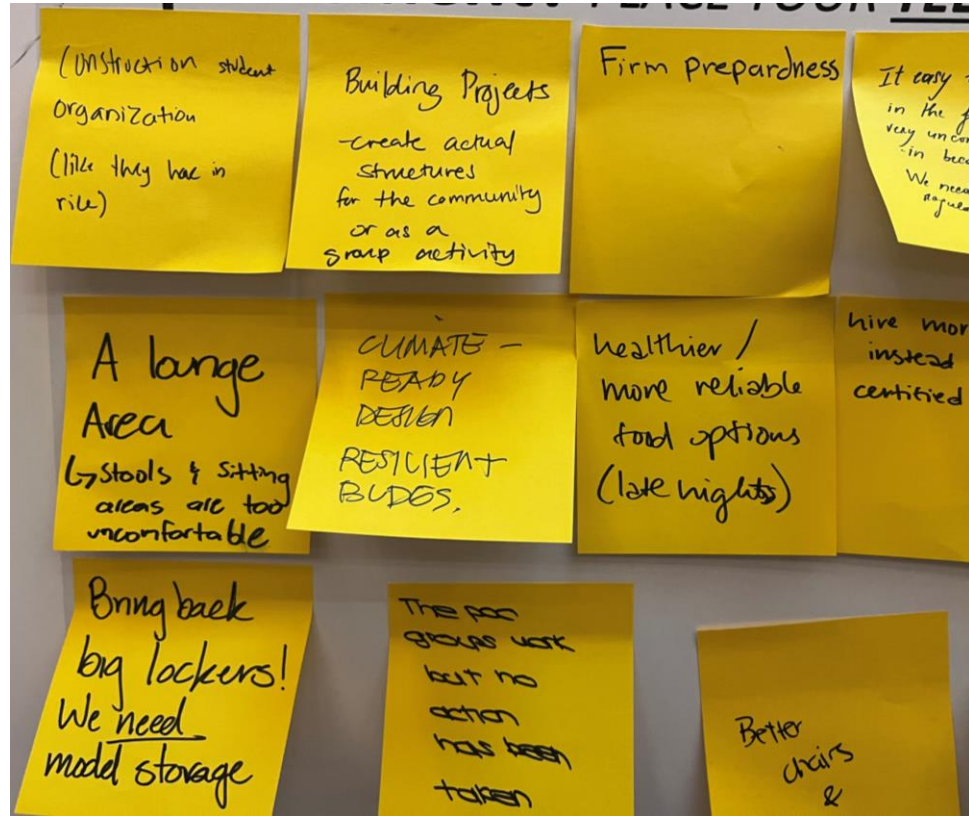 PLACE YOUR
Construction student
organization
(like they hae in
rice)
Building Projects
-create actual
structures
for the community
or as a
group activity
Firm prepardness
It easy
in the
very
-in
We
A lounge
Area
↳ Stools & Sitting
areas are too
uncomfortable
CLIMATE -
READY
DESIGN
RESILIENT
BLDGS.
healthier /
more reliable
food options
(late nights)
hire
instead
certified
Bring back
big lockers!
We need
model storage
The poc
groups work
but no
action
has been
taken
Better
chairs
&